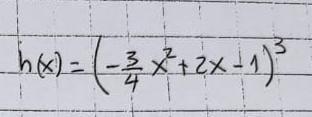 h(x) = (-3/4 x² + 2x - 1)³